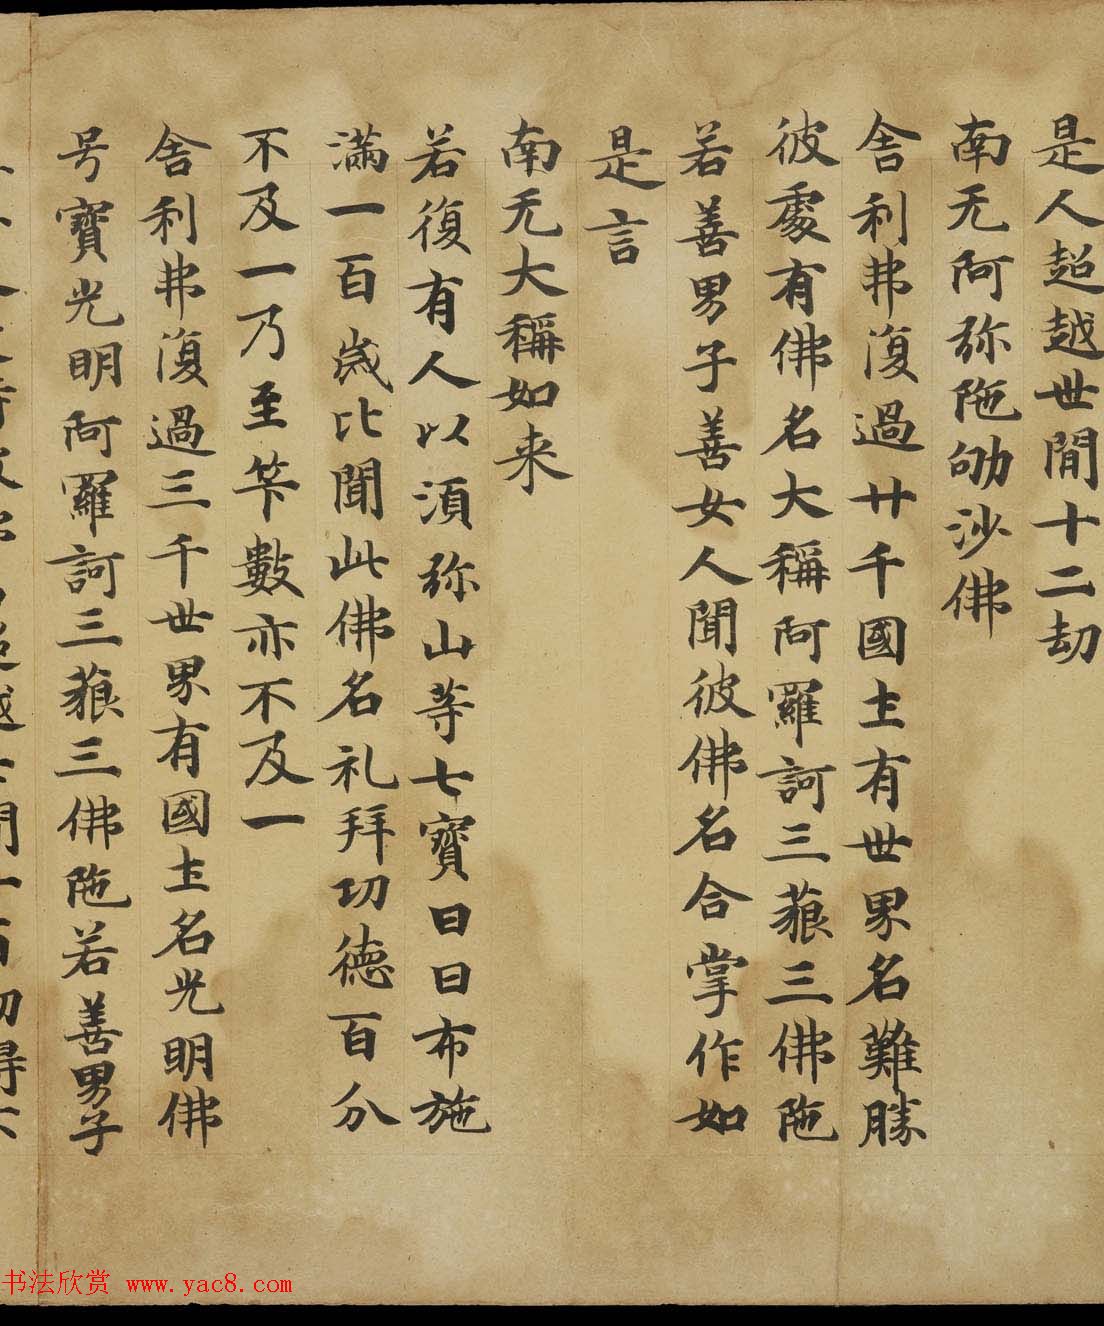 是人超越世間十二劫
南无阿弥陁劬沙佛
舍利弗復過廿千國土有世界名難勝
彼處有佛名大稱阿羅訶三藐三佛陁
若善男子善女人聞彼佛名合掌作如
是言
南无大稱如来
若復有人以須弥山等七寶日日布施
滿一百歲比聞此佛名礼拜功德百分
不及一乃至笇數亦不及一
舍利弗復過三千世界有國土名光明佛
号寶光明阿羅訶三藐三佛陁若善男子
书法欣赏 www.yac8.com